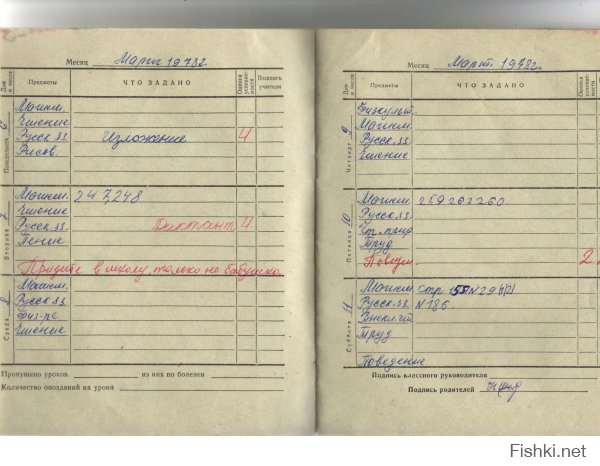 Месяц Март 1978г.
Дни и числа Предметы ЧТО ЗАДАНО Оценка успеваемости Подпись учителя
Понедельник 6
Матем.
Чтение
Русск. яз. Изложение 4
Рисов.
Вторник 7
Матем. 247, 248
Чтение
Русск. яз. Диктант 4
Пение
Придите в школу, только не бабушка
Среда 8
Матем.
Русск. яз.
Физ-ра
Чтение
Пропущено уроков из них по болезни
Количество опозданий на уроки
Месяц Март 1978г.
Дни и числа Предметы ЧТО ЗАДАНО Оценка успеваемости
Четверг 9
Физкульт.
Матем.
Русск. яз.
Чтение
Пятница 10
Матем. 259 262 260.
Русск. яз.
Труд
Повед. 2
Суббота 11
Матем. стр 155 N 29
Русск. яз. N 186.
Внекл. чт
Труд
Поведение
Подпись классного руководителя
Подпись родителей
Fishki.net